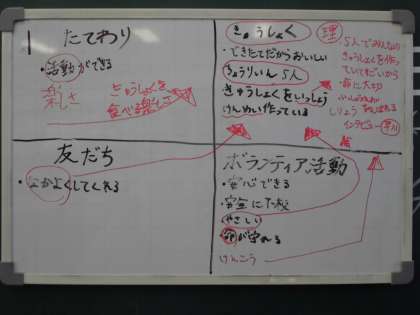 たてわり
・活動ができる
楽しさ
きゅうしょくを
食べる楽しさ
きゅうしょく
・できたてだからおいしい
きょうりいん 5人
きゅうしょくをいっしょう
けんめい作っている
理
5人でみんなの
きゅうしょくを作っ
ていてすごいから
インタビュー
友だち
・なかよくしてくれる
ボランティア活動
・安心できる
・安全に下校
やさしい
・命が守れる
けんこう